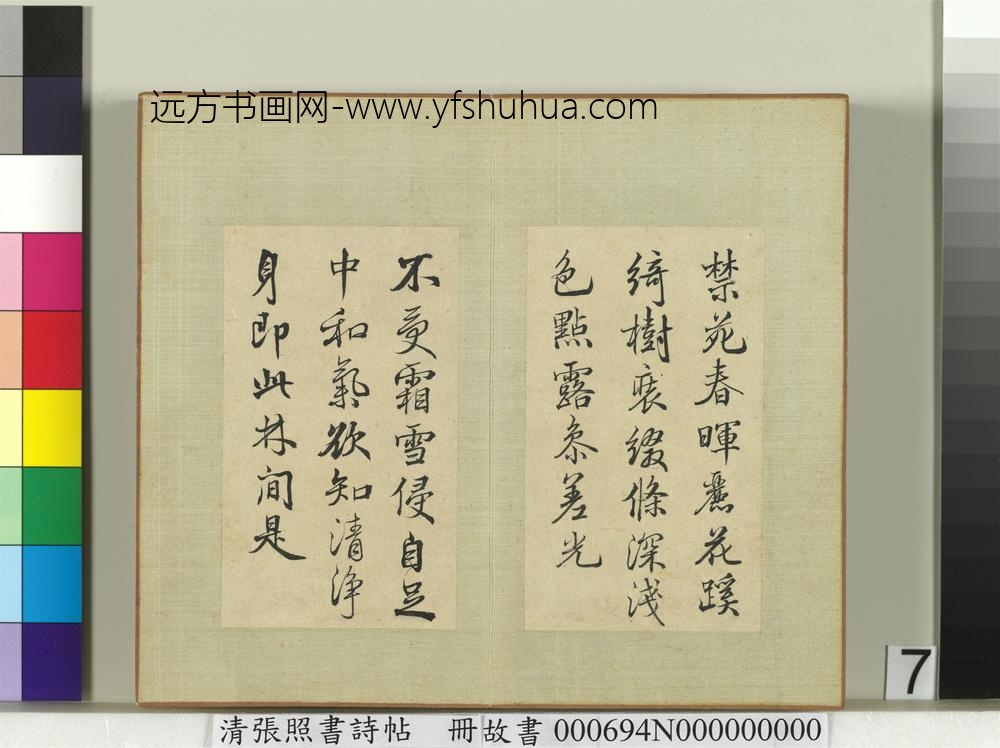 远方书画网-www.yfshuhua.com
禁苑春暉麗花蹊
綺樹裝綴條深淺
色點露參差光
不受霜雪侵自足
中和氣欲知清淨
身即此林間是
7
清張照書詩帖 冊故書 000694N000000000